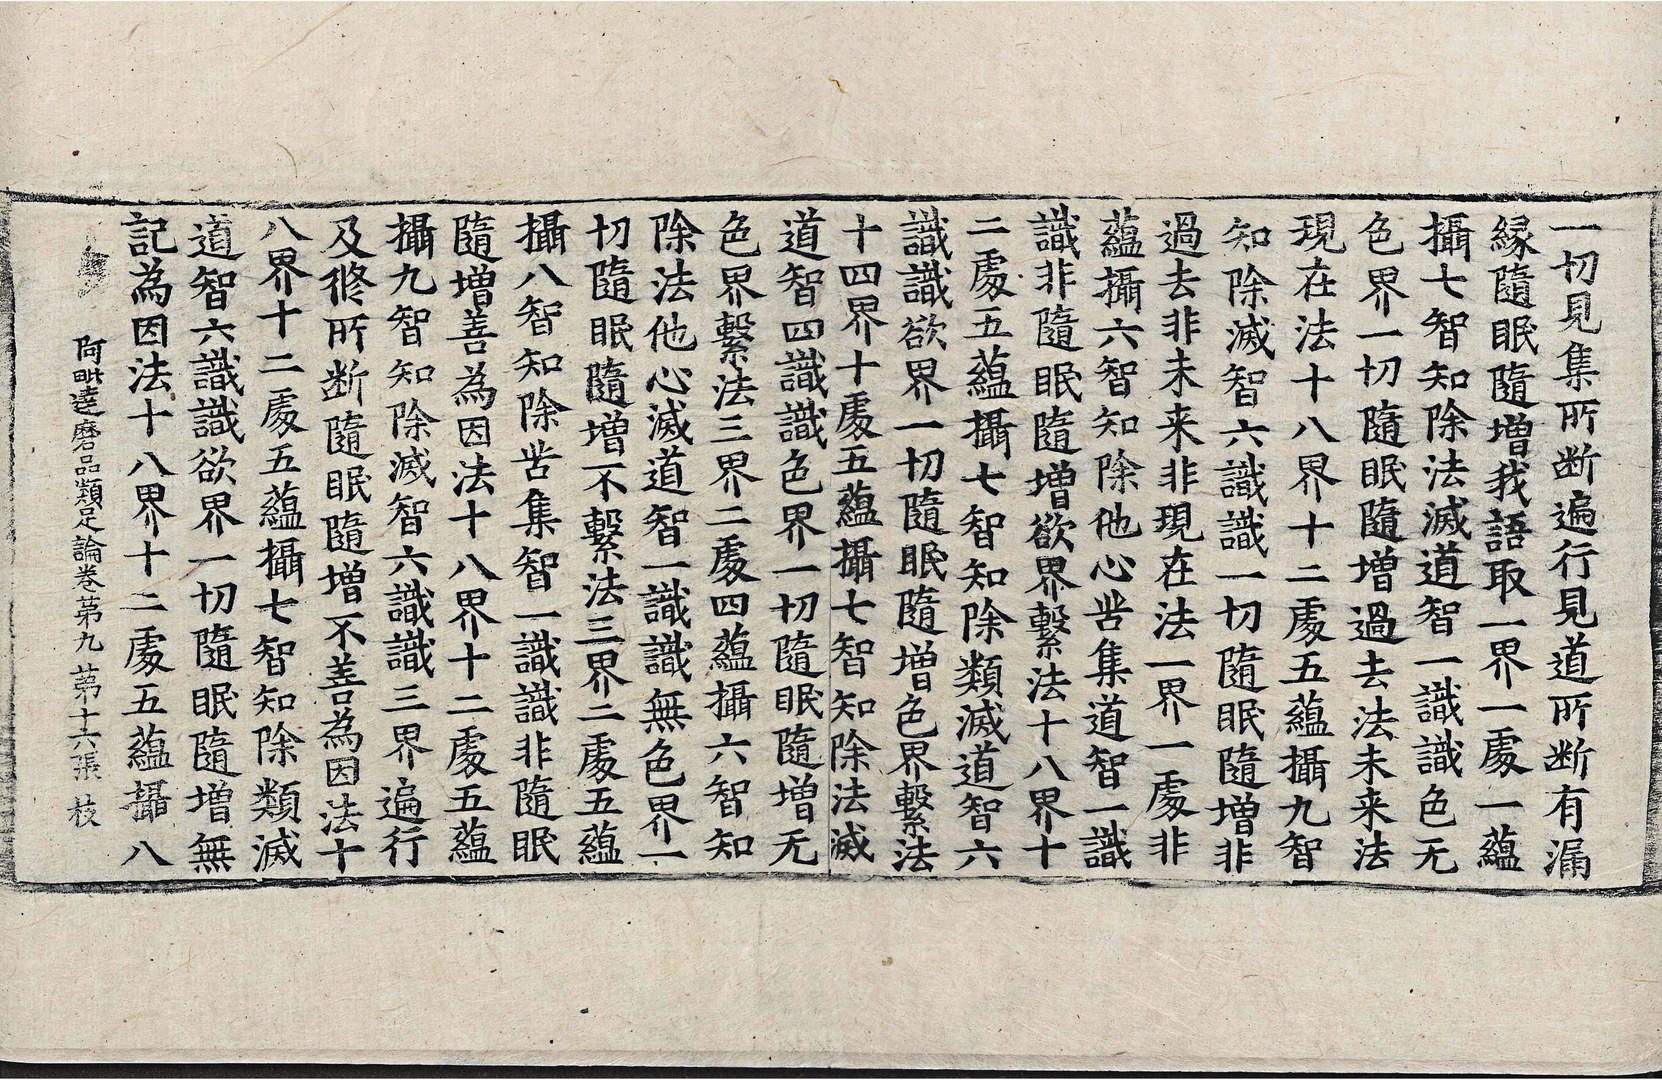 一切見集所断遍行見道所断有漏
縁隨眠隨增我語取一界一處一蘊
攝七智知除法滅道智一識識色无
色界一切隨眠隨增過去法未来法
現在法十八界十二處五蘊攝九智
知除滅智六識識一切隨眠隨增非
過去非未来非現在法一界一處非
蘊攝六智知除他心苦集道智一識
識非隨眠隨增欲界繫法十八界十
二處五蘊攝七智知除類滅道智六
識識欲界一切隨眠隨增色界繫法
十四界十處五蘊攝七智知除法滅
道智四識識色界一切隨眠隨增无
色界繫法三界二處四蘊攝六智知
除法他心滅道智一識識無色界一
切隨眠隨增不繫法三界二處五蘊
攝八智知除苦集智一識識非隨眠
隨增善為因法十八界十二處五蘊
攝九智知除滅智六識識三界遍行
及修所断隨眠隨增不善為因法十
八界十二處五蘊攝七智知除類滅
道智六識識欲界一切隨眠隨增無
記為因法十八界十二處五蘊攝八
阿毗達磨品類足論卷第九 第十六張 枝